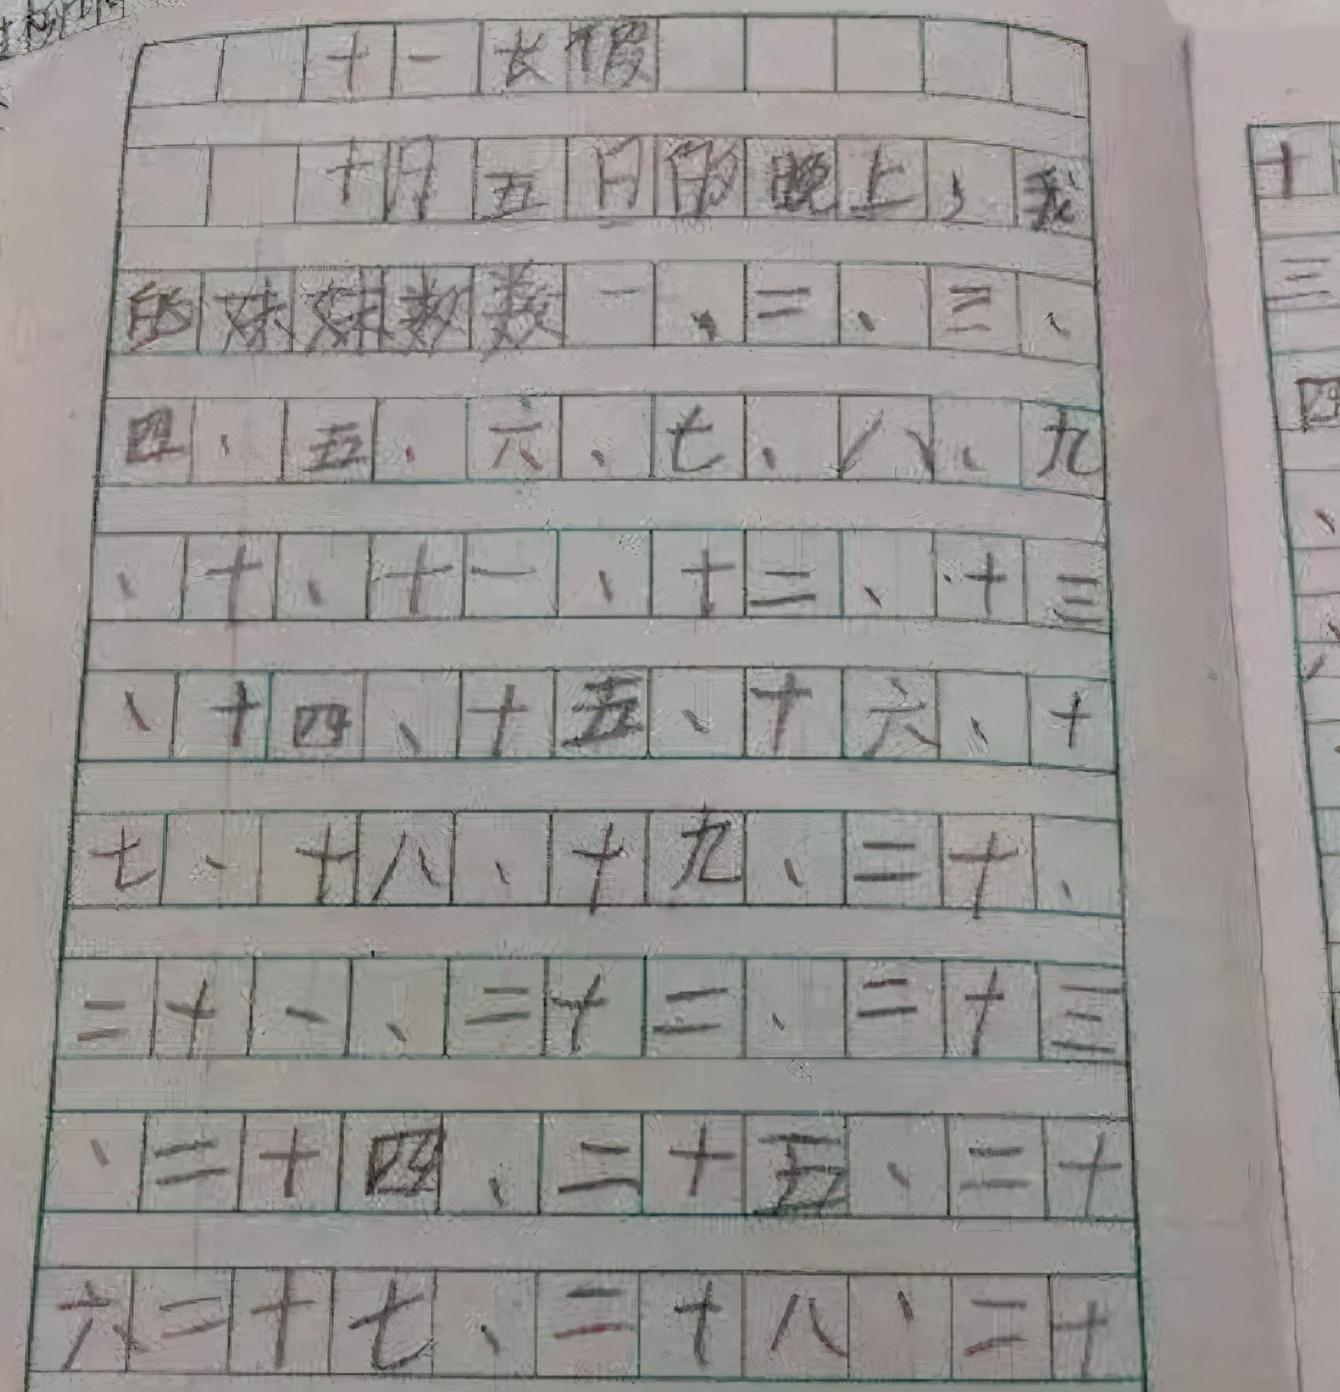 十一长假
十月五日的晚上，我
的妹妹数数一、二、三、
四、五、六、七、八、九
、十、十一、十二、十三
、十四、十五、十六、十
七、十八、十九、二十、
二十一、二十二、二十三
、二十四、二十五、二十
六二十七、二十八、二十
十
三
四
、
、